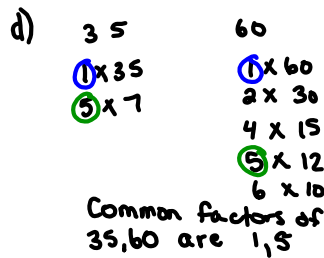 d) 35 60
1 x 35 1 x 60
5 x 7 2 x 30
4 x 15
5 x 12
6 x 10
Common factors of
35,60 are 1,5